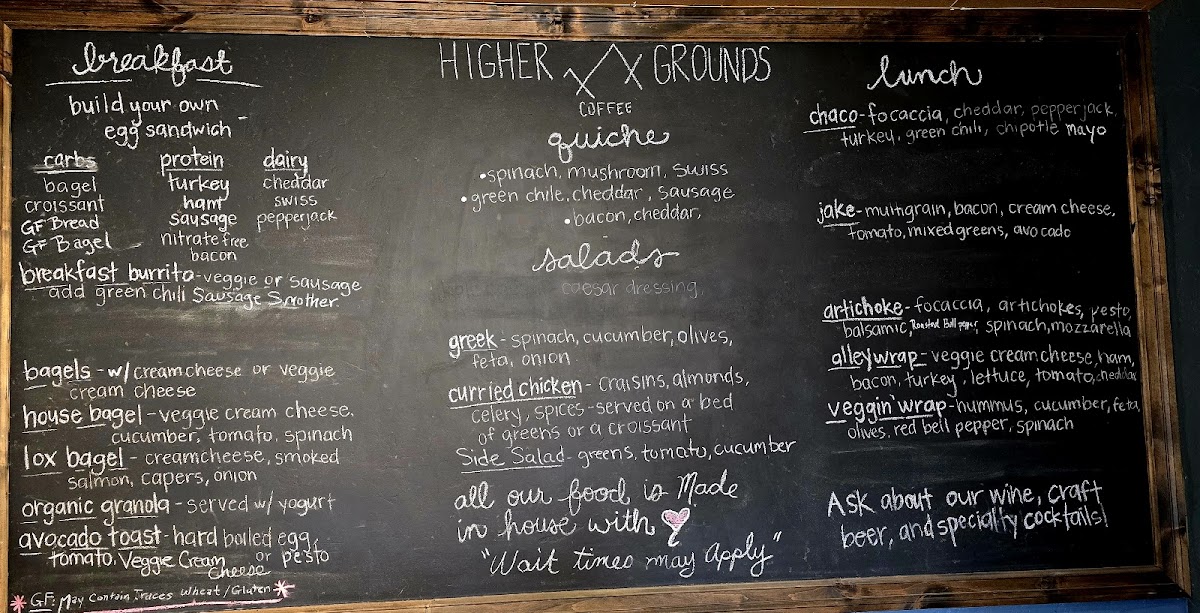 breakfast
build your own
egg sandwich
carbs protein dairy
bagel turkey cheddar
croissant ham swiss
GF Bread sausage pepperjack
GF Bagel nitrate free
bacon
breakfast burrito - veggie or sausage
add green chili Sausage Smother
bagels - w/ creamcheese or veggie
cream cheese
house bagel - veggie cream cheese,
cucumber, tomato, spinach
lox bagel - creamcheese, smoked
salmon, capers, onion
organic granola - served w/ yogurt
avocado toast - hard boiled egg,
tomato, Veggie Cream or pesto
cheese
* GF: May Contain Traces Wheat/Gluten *
HIGHER GROUNDS
COFFEE
quiche
• spinach, mushroom, swiss
• green chile, cheddar, sausage
• bacon, cheddar,
salads
caesar dressing,
greek - spinach, cucumber, olives,
feta, onion
curried chicken - craisins, almonds,
celery, spices - served on a bed
of greens or a croissant
Side Salad - greens, tomato, cucumber
all our food is Made
in house with
"Wait times may Apply"
lunch
chaco - focaccia, cheddar, pepperjack,
turkey, green chili, chipotle mayo
jake - multigrain, bacon, cream cheese,
tomato, mixed greens, avocado
artichoke - focaccia, artichokes, pesto,
balsamic, Roasted Bell pepper, spinach, mozzarella
alley wrap - veggie cream cheese, ham,
bacon, turkey, lettuce, tomato, cheddar
veggin' wrap - hummus, cucumber, feta,
olives, red bell pepper, spinach
Ask about our wine, craft
beer, and specialty cocktails!